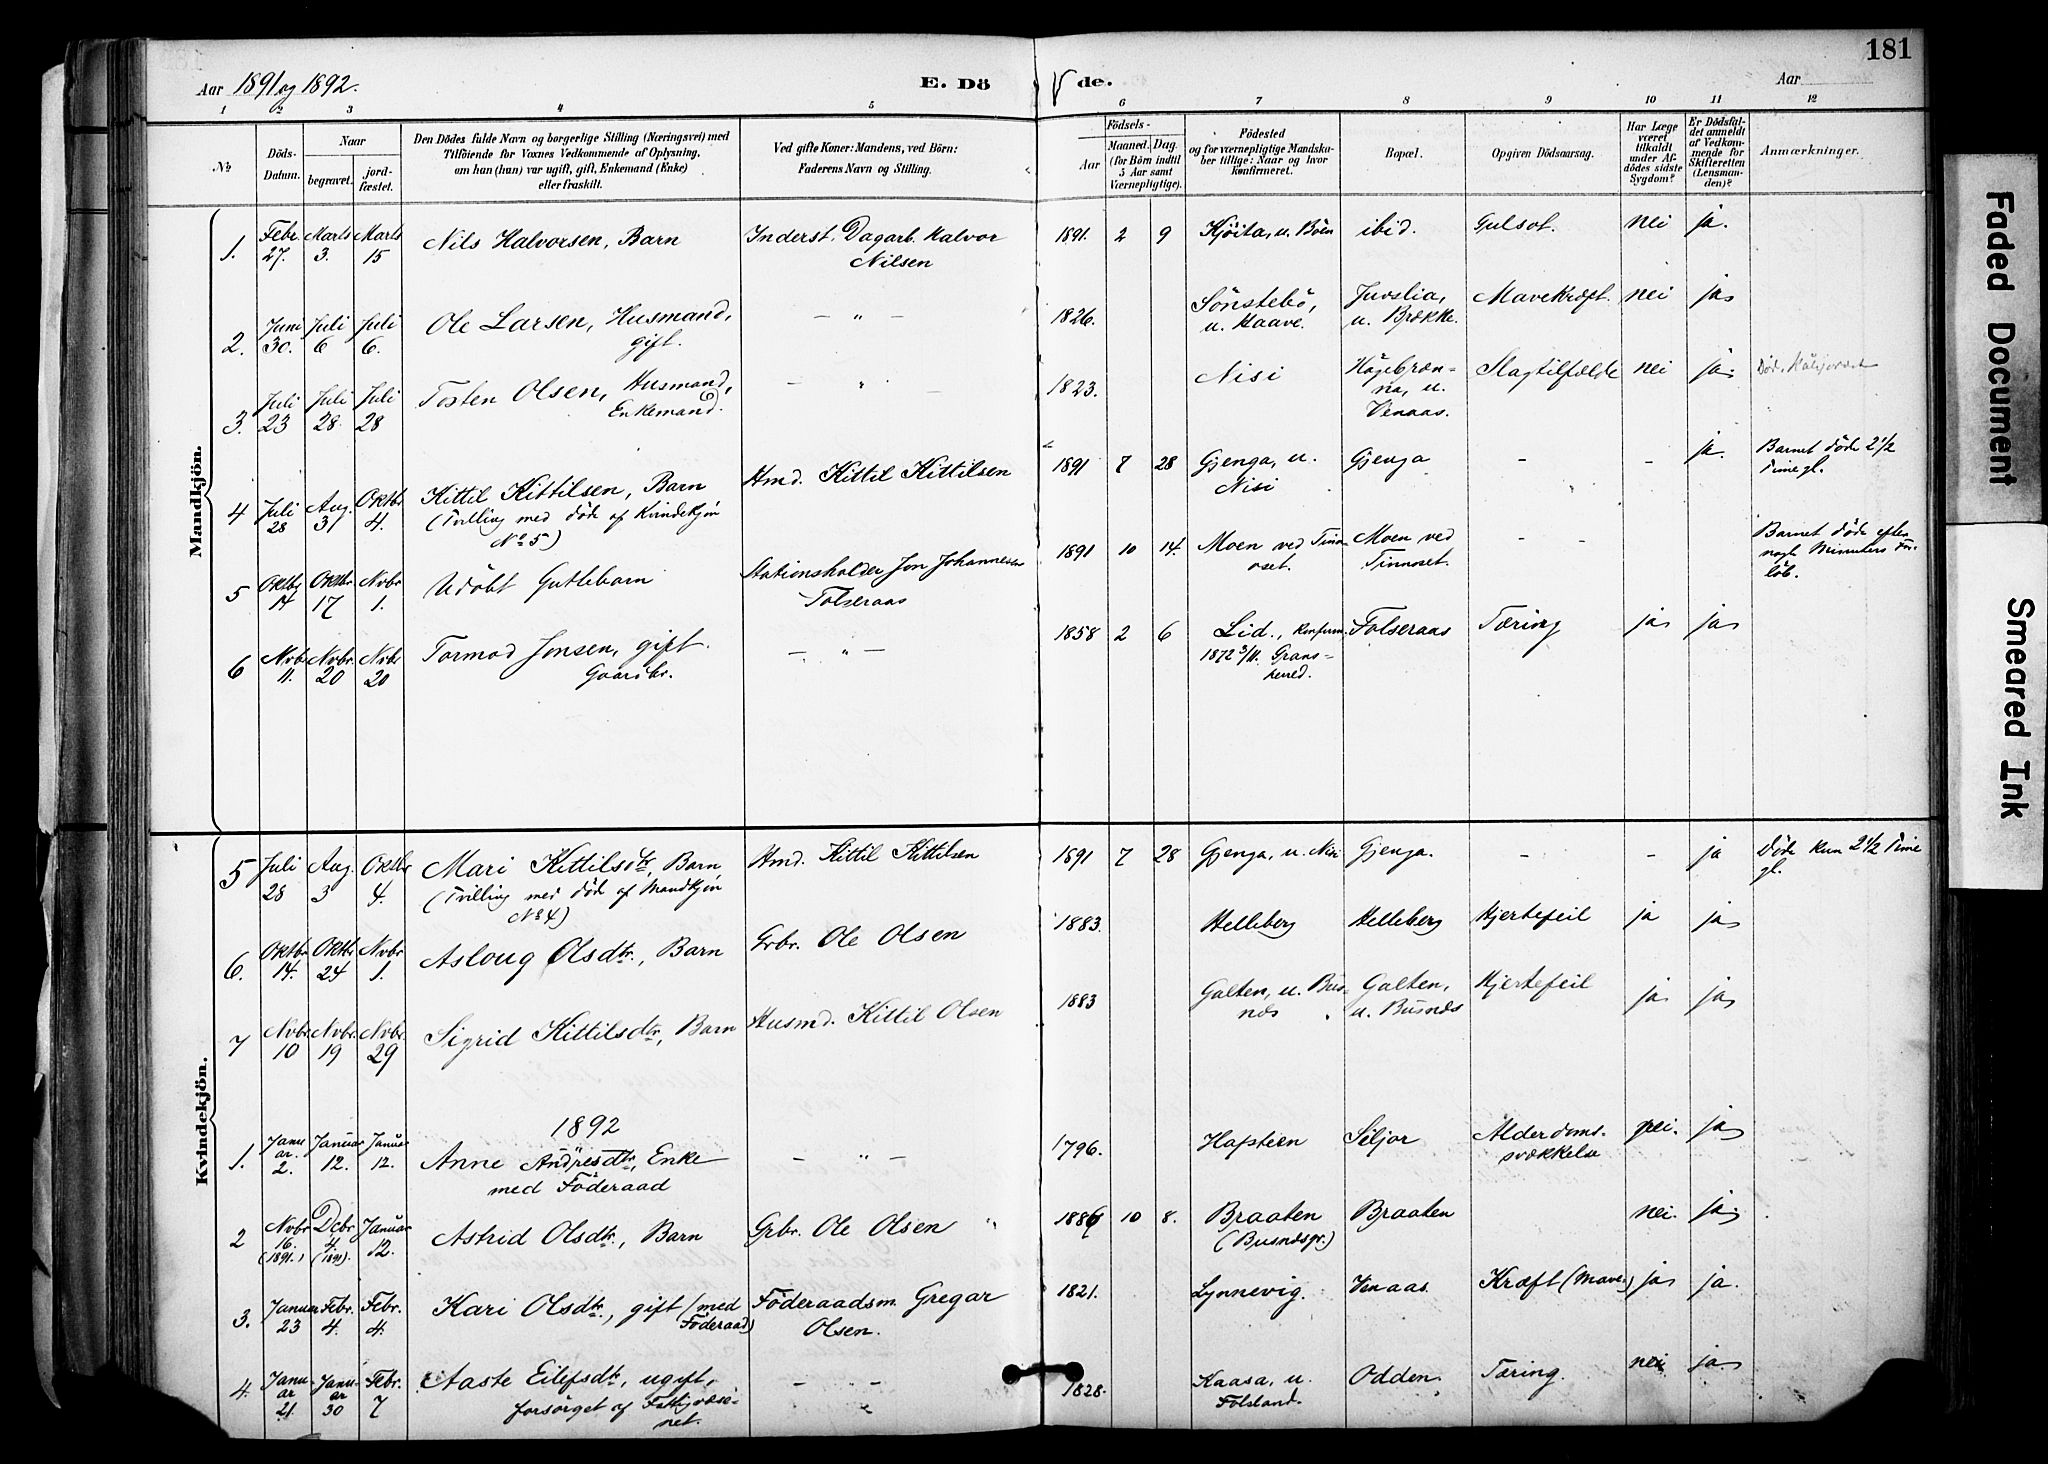 181
Aar 1891 og 1892.
E. Dö
de.
Aar
1 2 3 4 5 6 7 8 9 10 11 12
No
Döds-Datum.
Naar
begravet.
jord-fæstet.
Den Dödes fulde Navn og borgerlige Stilling (Næringsvei) med
Tilföiende for Voxnes Vedkommende af Oplysning,
om han (hun) var ugift, gift, Enkemand (Enke)
eller fraskilt.
Ved gifte Koner: Mandens, ved Börn:
Faderens Navn og Stilling.
Födsels-
Aar
Maaned. Dag.
(for Börn indtil
5 Aar samt
Værnepligtige).
Födested
og for værnepligtige Mandska-
ber tillige: Naar og hvor
konfirmeret.
Bopæl.
Opgiven Dödsaarsag.
Har Læge
været
tilkaldt
under Af-
dödes sidste
Sygdom?
Er Dödsfal-
det anmeldt
af Vedkom-
mende for
Skifteretten
(Lensman-
den)?
Anmærkninger.
Mandkjön.
1. Febr. 27. Marts 3. Marts 15 Nils Halvorsen, Barn Inderst. Dagarb. Halvor Nilsen 1891. 2 9 Kjöita, u. Böen ibid. Gulsot. nei ja.
2. Juni 30. Juli 6 Juli 6. Ole Larsen, Husmand, gift. – " – 1826. Sönstebö, u. Haave. Juvslia, u. Brække. Mavekræft. nei ja
3. Juli 23 Juli 28. Juli 28 Tosten Olsen, Husmand, Enkemand. – " – 1823. Nisi Högebræn-na, u. Venaas. Slagtilfælde nei ja.
4 Juli 28 Aug. 31 Oktbr 4. Kittil Kittilsen, Barn Hmd. Kittil Kittilsen 1891 7 28 Gjenga, u. Nisi Gjenga - - ja. Barnet döde 2 1/2 Time gl.
(Tvilling med döde af Kvindekjön
No 5)
5 Oktbr 14 Oktbr. 17 Nvbr. 1. Udöbt Guttebarn Stationsholder Jon Johannesen Folseraas 1891 10 14. Moen ved Tinn-oset. Moen ved Tinnoset. - - Barnet döde efter nogle Minuters For-löb.
6 Nvbr. 11. Nvbr. 20 Nvbr 20 Tormod Jonsen, gift Gaardbr. – " – 1858 2 6 Lid., konfirm. 1872 3/11. Grans-herred. Folseraas Tæring ja ja
Kvindekjön.
5 Juli 28 Aug. 3 Oktbr 4. Mari Kittilsdtr, Barn Hmd. Kittil Kittilsen 1891 7 28 Gjenga, u. Nisi Gjenga. - - ja Döde kun 2 1/2 Time gl.
(Tvilling med döde af Mandkjön
No 4)
6. Oktbr 14. Oktbr 24 Nvbr 1. Asloug Olsdtr., Barn Grbr. Ole Olsen 1883. Helleberg Helleberg Hjertefeil ja ja
7 Nvbr. 10 Nvbr. 19 Nvbr. 29 Sigrid Kittilsdtr, Barn Husmd. Kittil Olsen 1883 Galten, u. Bus-næs Galten, u. Busnæs Hjertefeil ja ja
1892
1. Janu-ar. 2. Januar 12. Januar 12. Anne Andresdtr, Enke med Föderaad – " – 1796. Hafsteen Siljor Alderdoms-svækkelse nei. ja
2 Nvbr. 16. (1891.) Dcbr. 4 (1891). Januar 12. Astrid Olsdtr., Barn Grbr. Ole Olsen 1886 10 8. Braaten (Busnæsgr.) Braaten nei. ja.
3. Januar 23 Febr. 4. Febr. 4. Kari Olsdtr., gift (med Föderaad) Föderaadsm. Gregar Olsen. 1821. Lynnevig. Venaas. Kræft (Mave.) ja ja.
4. Janu-ar 21. Janu-ar 30 Febr. 7 Aaste Eilefsdtr, ugift, forsörget af Fattigvæse-net. – " – 1828. Kaasa, u. Folsland. Odden. Tæring. nei ja.
Faded Document
Smeared Ink